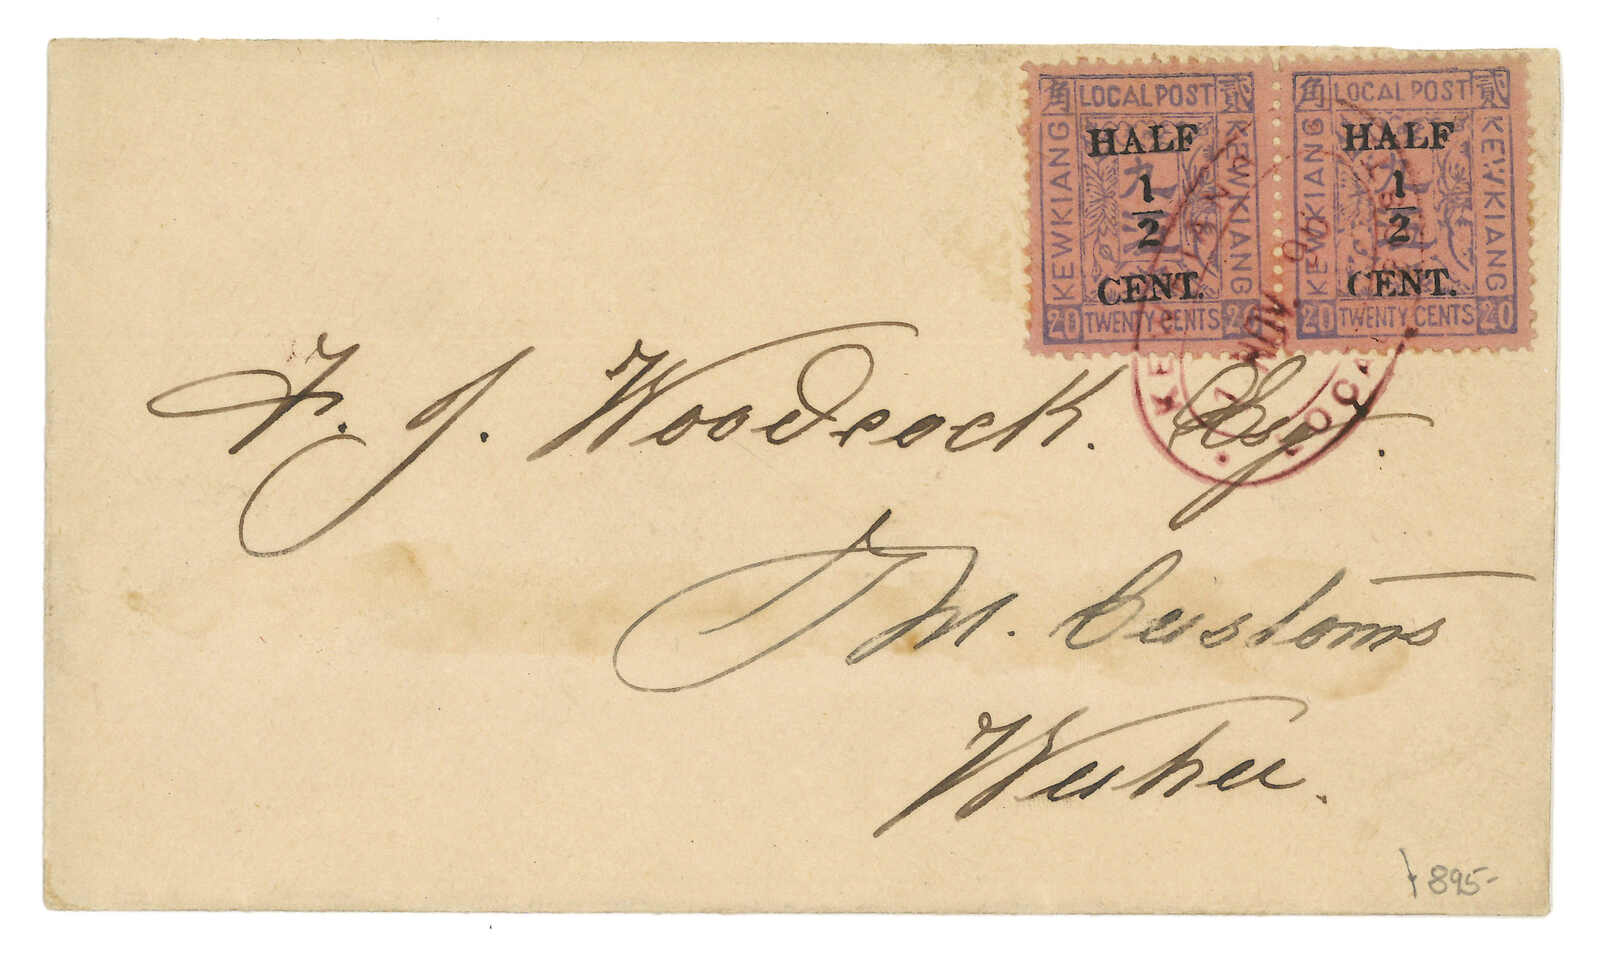 角 LOCAL POST 貳
KEWKIANG
HALF
1/2
CENT.
九江
KEWKIANG
20 TWENTY CENTS 20
角 LOCAL POST 貳
KEWKIANG
HALF
1/2
CENT.
九江
KEWKIANG
20 TWENTY CENTS 20
F. J. Woodcock. Esqr.
I M. Customs
Wuhu.
895-